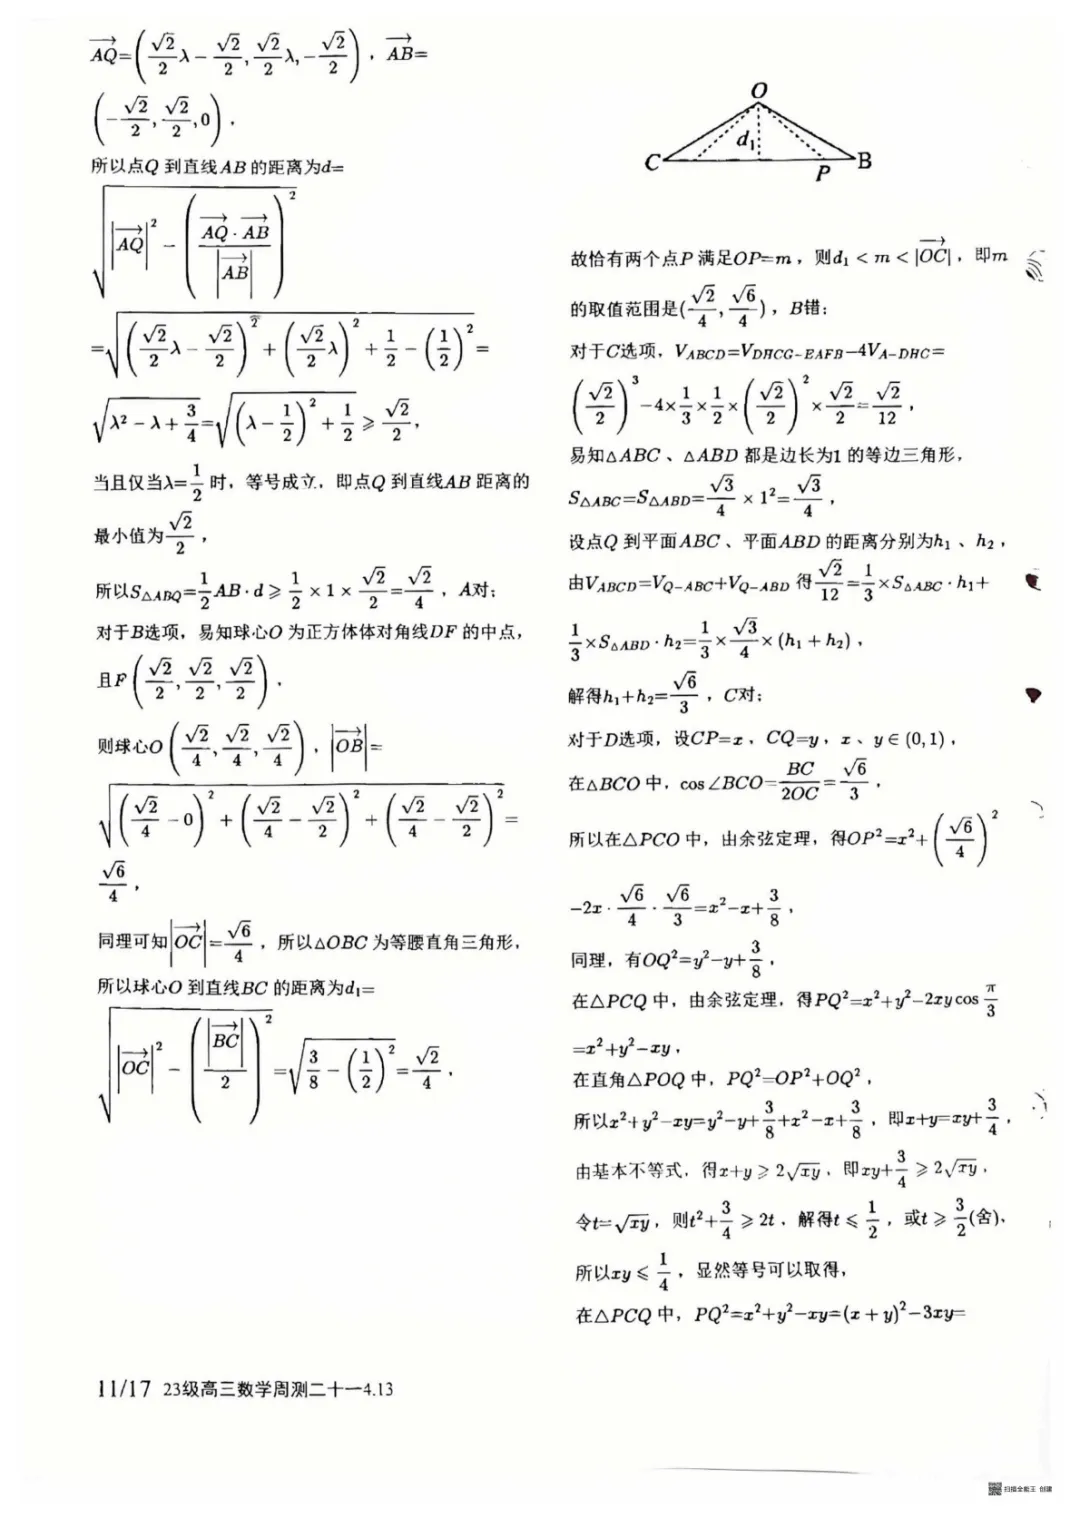 $\overrightarrow{AQ}=\left(\frac{\sqrt{2}}{2}\lambda-\frac{\sqrt{2}}{2},\frac{\sqrt{2}}{2}\lambda,-\frac{\sqrt{2}}{2}\right)$，$\overrightarrow{AB}=$
$\left(-\frac{\sqrt{2}}{2},\frac{\sqrt{2}}{2},0\right)$，
所以点Q 到直线AB 的距离为d=
$\sqrt{\left|\overrightarrow{AQ}\right|^2-\left(\frac{\overrightarrow{AQ}\cdot\overrightarrow{AB}}{\left|\overrightarrow{AB}\right|}\right)^2}$
$=\sqrt{\left(\frac{\sqrt{2}}{2}\lambda-\frac{\sqrt{2}}{2}\right)^2+\left(\frac{\sqrt{2}}{2}\lambda\right)^2+\frac{1}{2}-\left(\frac{1}{2}\right)^2}=$
$\sqrt{\lambda^2-\lambda+\frac{3}{4}}=\sqrt{\left(\lambda-\frac{1}{2}\right)^2+\frac{1}{2}}\geqslant\frac{\sqrt{2}}{2}$，
当且仅当$\lambda=\frac{1}{2}$ 时，等号成立，即点Q 到直线AB 距离的
最小值为$\frac{\sqrt{2}}{2}$，
所以$S_{\triangle ABQ}=\frac{1}{2}AB\cdot d\geqslant\frac{1}{2}\times1\times\frac{\sqrt{2}}{2}=\frac{\sqrt{2}}{4}$，A对；
对于B选项，易知球心O 为正方体体对角线DF 的中点，
且$F\left(\frac{\sqrt{2}}{2},\frac{\sqrt{2}}{2},\frac{\sqrt{2}}{2}\right)$，
则球心$O\left(\frac{\sqrt{2}}{4},\frac{\sqrt{2}}{4},\frac{\sqrt{2}}{4}\right)$，$\left|\overrightarrow{OB}\right|=$
$\sqrt{\left(\frac{\sqrt{2}}{4}-0\right)^2+\left(\frac{\sqrt{2}}{4}-\frac{\sqrt{2}}{2}\right)^2+\left(\frac{\sqrt{2}}{4}-\frac{\sqrt{2}}{2}\right)^2}=$
$\frac{\sqrt{6}}{4}$，
同理可知$\left|\overrightarrow{OC}\right|=\frac{\sqrt{6}}{4}$，所以△OBC 为等腰直角三角形，
所以球心O 到直线BC 的距离为$d_1=$
$\sqrt{\left|\overrightarrow{OC}\right|^2-\left(\frac{\left|\overrightarrow{BC}\right|}{2}\right)^2}=\sqrt{\frac{3}{8}-\left(\frac{1}{2}\right)^2}=\frac{\sqrt{2}}{4}$，
O
$d_1$
C
P
B
故恰有两个点P 满足OP=m，则$d_1<m<|\overrightarrow{OC}|$，即m
的取值范围是$(\frac{\sqrt{2}}{4},\frac{\sqrt{6}}{4})$，B错；
对于C选项，$V_{ABCD}=V_{DHCG-EAFB}-4V_{A-DHC}=$
$\left(\frac{\sqrt{2}}{2}\right)^3-4\times\frac{1}{3}\times\frac{1}{2}\times\left(\frac{\sqrt{2}}{2}\right)^2\times\frac{\sqrt{2}}{2}=\frac{\sqrt{2}}{12}$，
易知△ABC、△ABD 都是边长为1 的等边三角形，
$S_{\triangle ABC}=S_{\triangle ABD}=\frac{\sqrt{3}}{4}\times1^2=\frac{\sqrt{3}}{4}$，
设点Q 到平面ABC、平面ABD 的距离分别为$h_1$、$h_2$，
由$V_{ABCD}=V_{Q-ABC}+V_{Q-ABD}$ 得$\frac{\sqrt{2}}{12}=\frac{1}{3}\times S_{\triangle ABC}\cdot h_1+$
$\frac{1}{3}\times S_{\triangle ABD}\cdot h_2=\frac{1}{3}\times\frac{\sqrt{3}}{4}\times(h_1+h_2)$，
解得$h_1+h_2=\frac{\sqrt{6}}{3}$，C对；
对于D选项，设CP=x，CQ=y，x、y∈(0,1)，
在△BCO 中，$\cos\angle BCO=\frac{BC}{2OC}=\frac{\sqrt{6}}{3}$，
所以在△PCO 中，由余弦定理，得$OP^2=x^2+\left(\frac{\sqrt{6}}{4}\right)^2$
$-2x\cdot\frac{\sqrt{6}}{4}\cdot\frac{\sqrt{6}}{3}=x^2-x+\frac{3}{8}$，
同理，有$OQ^2=y^2-y+\frac{3}{8}$，
在△PCQ 中，由余弦定理，得$PQ^2=x^2+y^2-2xy\cos\frac{\pi}{3}$
$=x^2+y^2-xy$，
在直角△POQ 中，$PQ^2=OP^2+OQ^2$，
所以$x^2+y^2-xy=y^2-y+\frac{3}{8}+x^2-x+\frac{3}{8}$，即$x+y=xy+\frac{3}{4}$，
由基本不等式，得$x+y\geqslant2\sqrt{xy}$，即$xy+\frac{3}{4}\geqslant2\sqrt{xy}$，
令$t=\sqrt{xy}$，则$t^2+\frac{3}{4}\geqslant2t$，解得$t\leqslant\frac{1}{2}$，或$t\geqslant\frac{3}{2}$(舍)，
所以$xy\leqslant\frac{1}{4}$，显然等号可以取得，
在△PCQ 中，$PQ^2=x^2+y^2-xy=(x+y)^2-3xy=$
11/17 23级高三数学周测二十一4.13
扫描全能王 创建